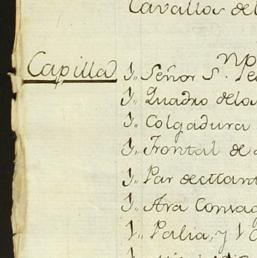 Cavallos del
Capilla 1,, Señor S.
1,, Quadro de los
1,, Colgadura
1,, Frontal de
1,, Par de
1,, Ara Consag
1,, Palia, y 1